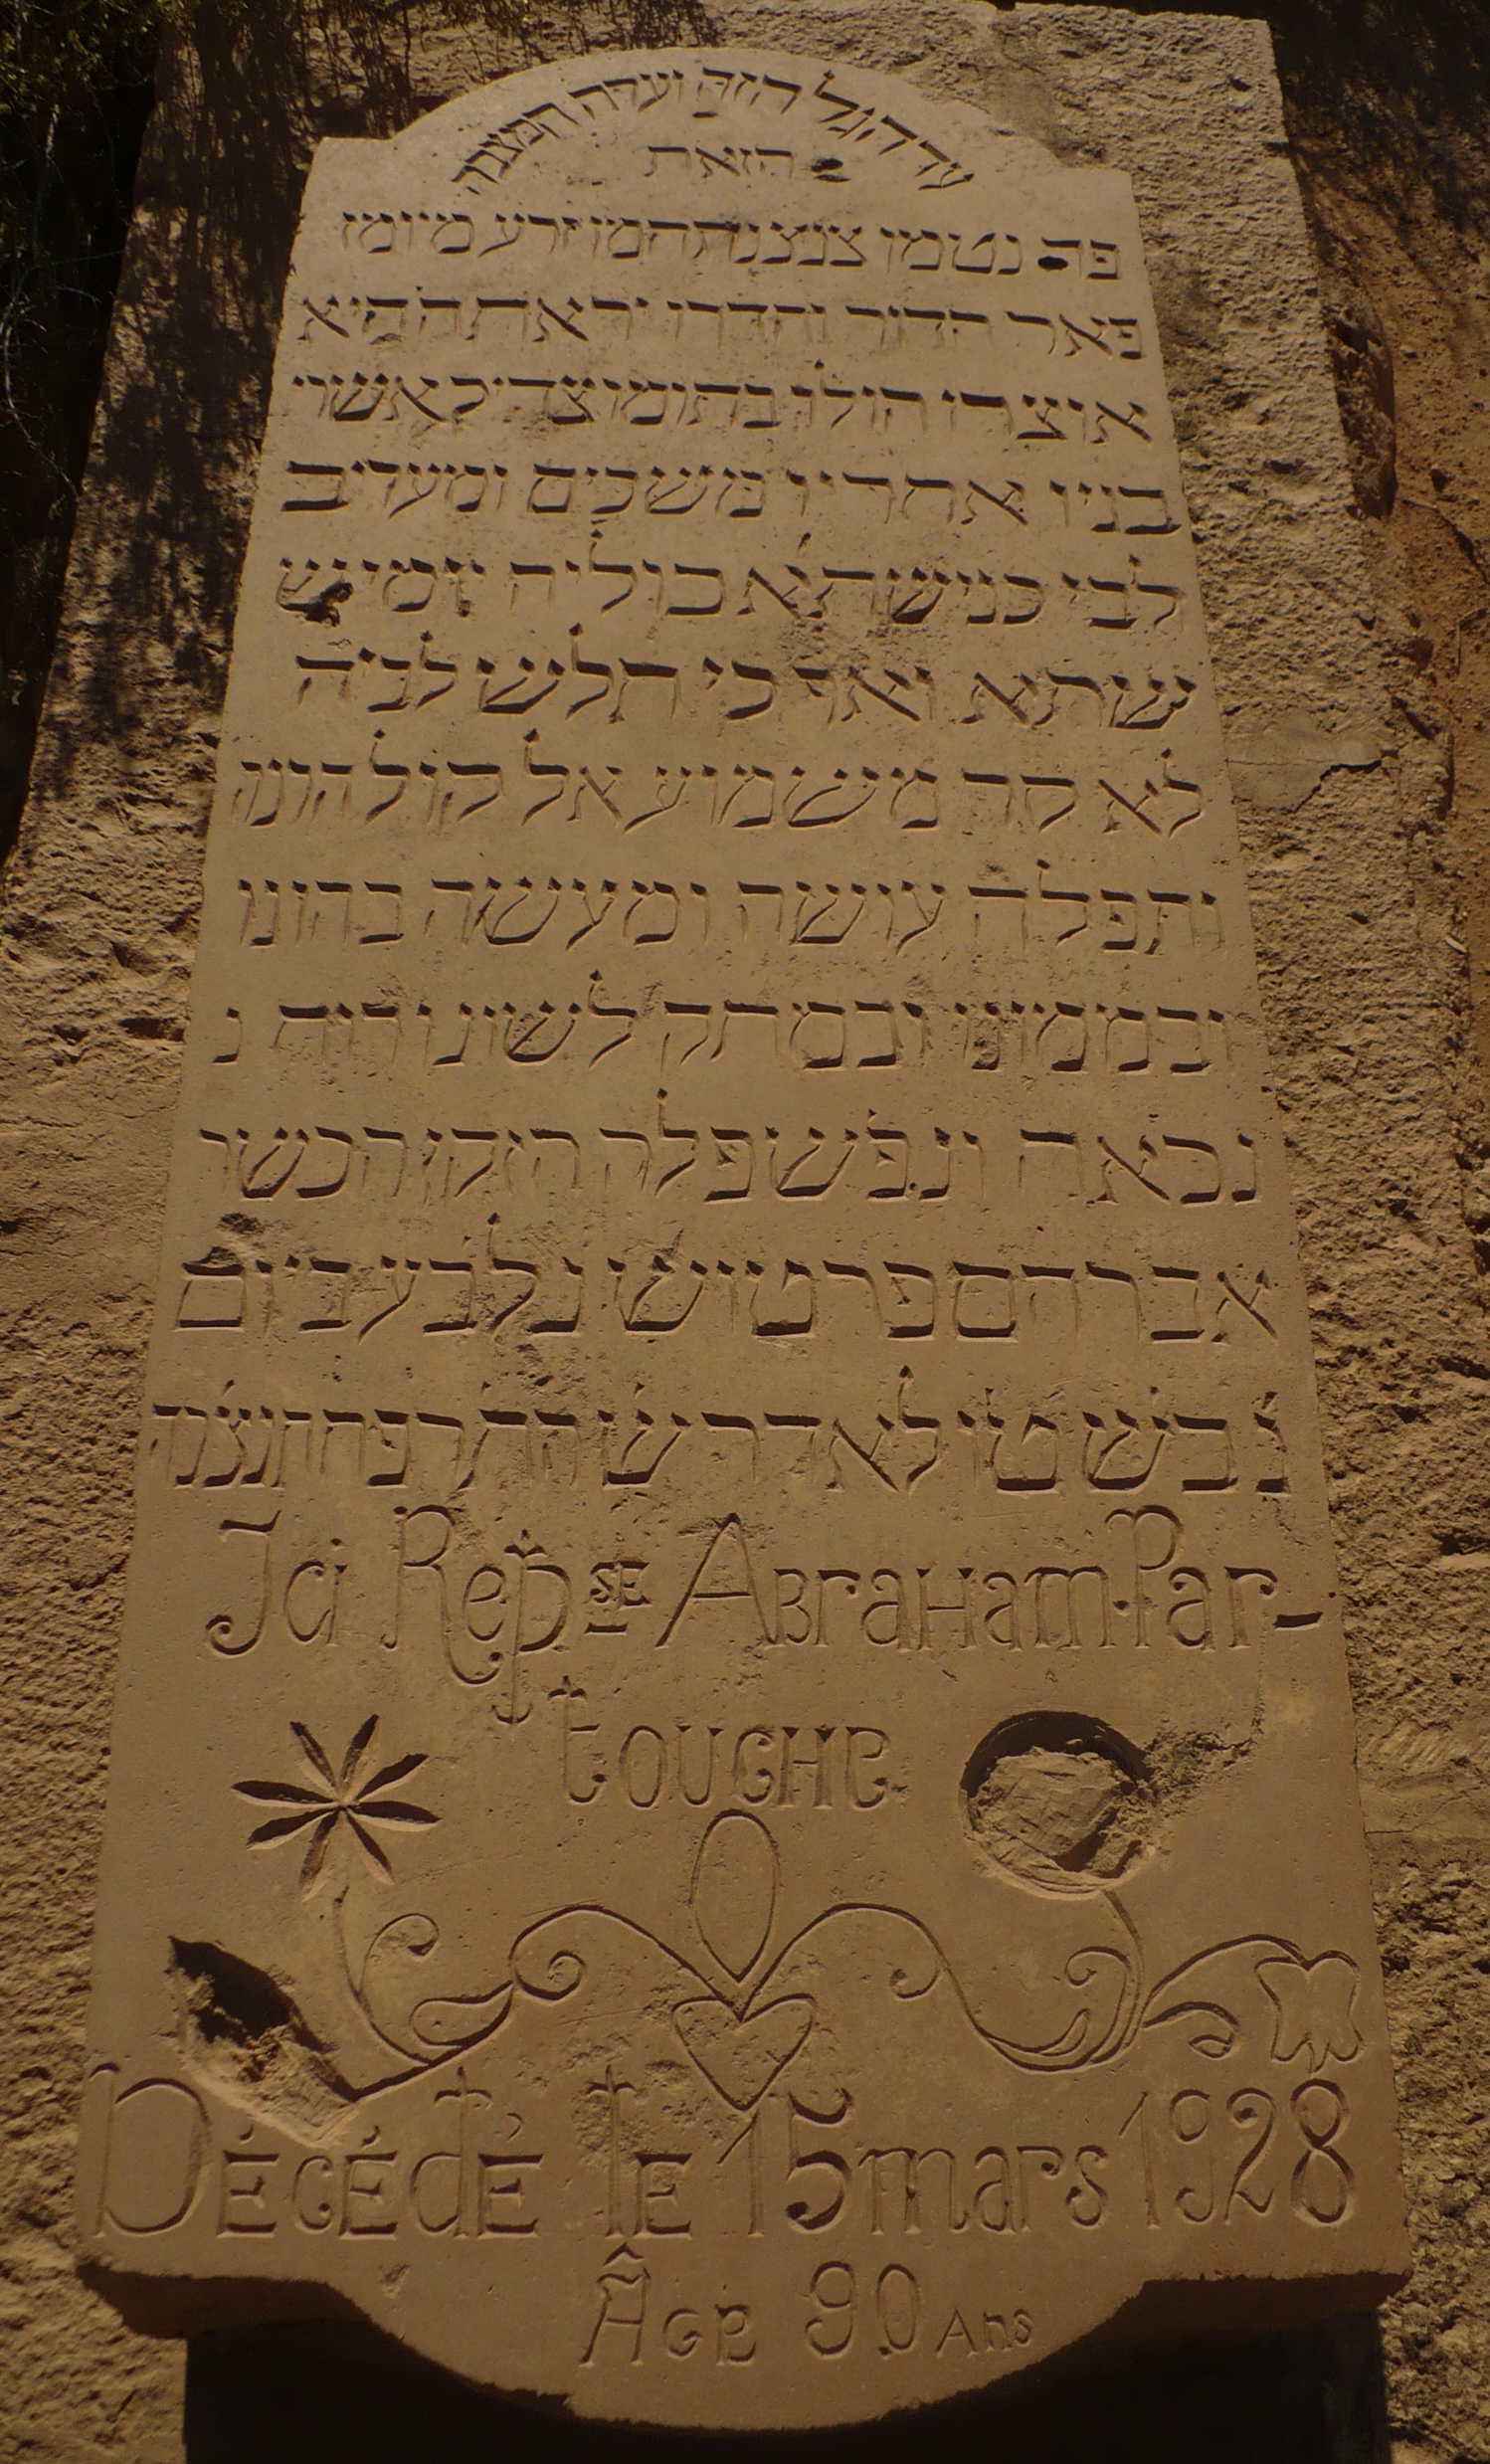 עד הגל הזה ועדה המצבה
הזאת
פה נטמן צנצנת המן זרע מיומן
פאר הדור והדרו יראת ה היא
אוצרו הולך בתומו צדיק אשרי
בניו אחריו משכים ומעריב
לבי כנישתא כוליה יומי
שתא ואף כי חלש לביה
לא קר משמוע אל קול הונה
ותפלה עושה ומעשה בהונו
ובממונו ובמתק לשונו רוח נ
נכאה ונפש שפלה הזקן הכשר
אברהם פרטוש נלבע ביום
לאדר ש התרפח תנצבה
Ici Repose Abraham Par-
touche
Décédé le 15 mars 1928
Âge 90 Ans